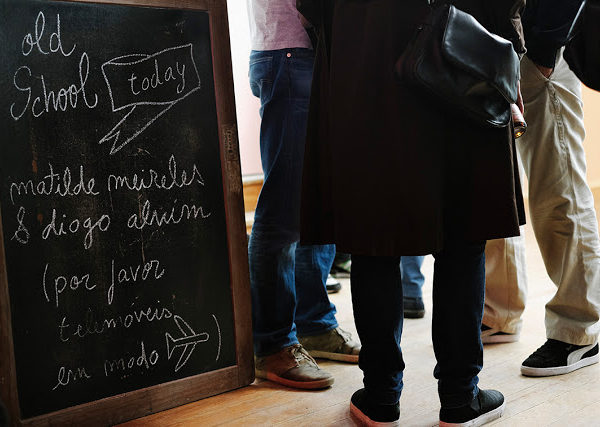 old
School
today
matilde meireles
& diogo alvim
(por favor
telemóveis
em modo )